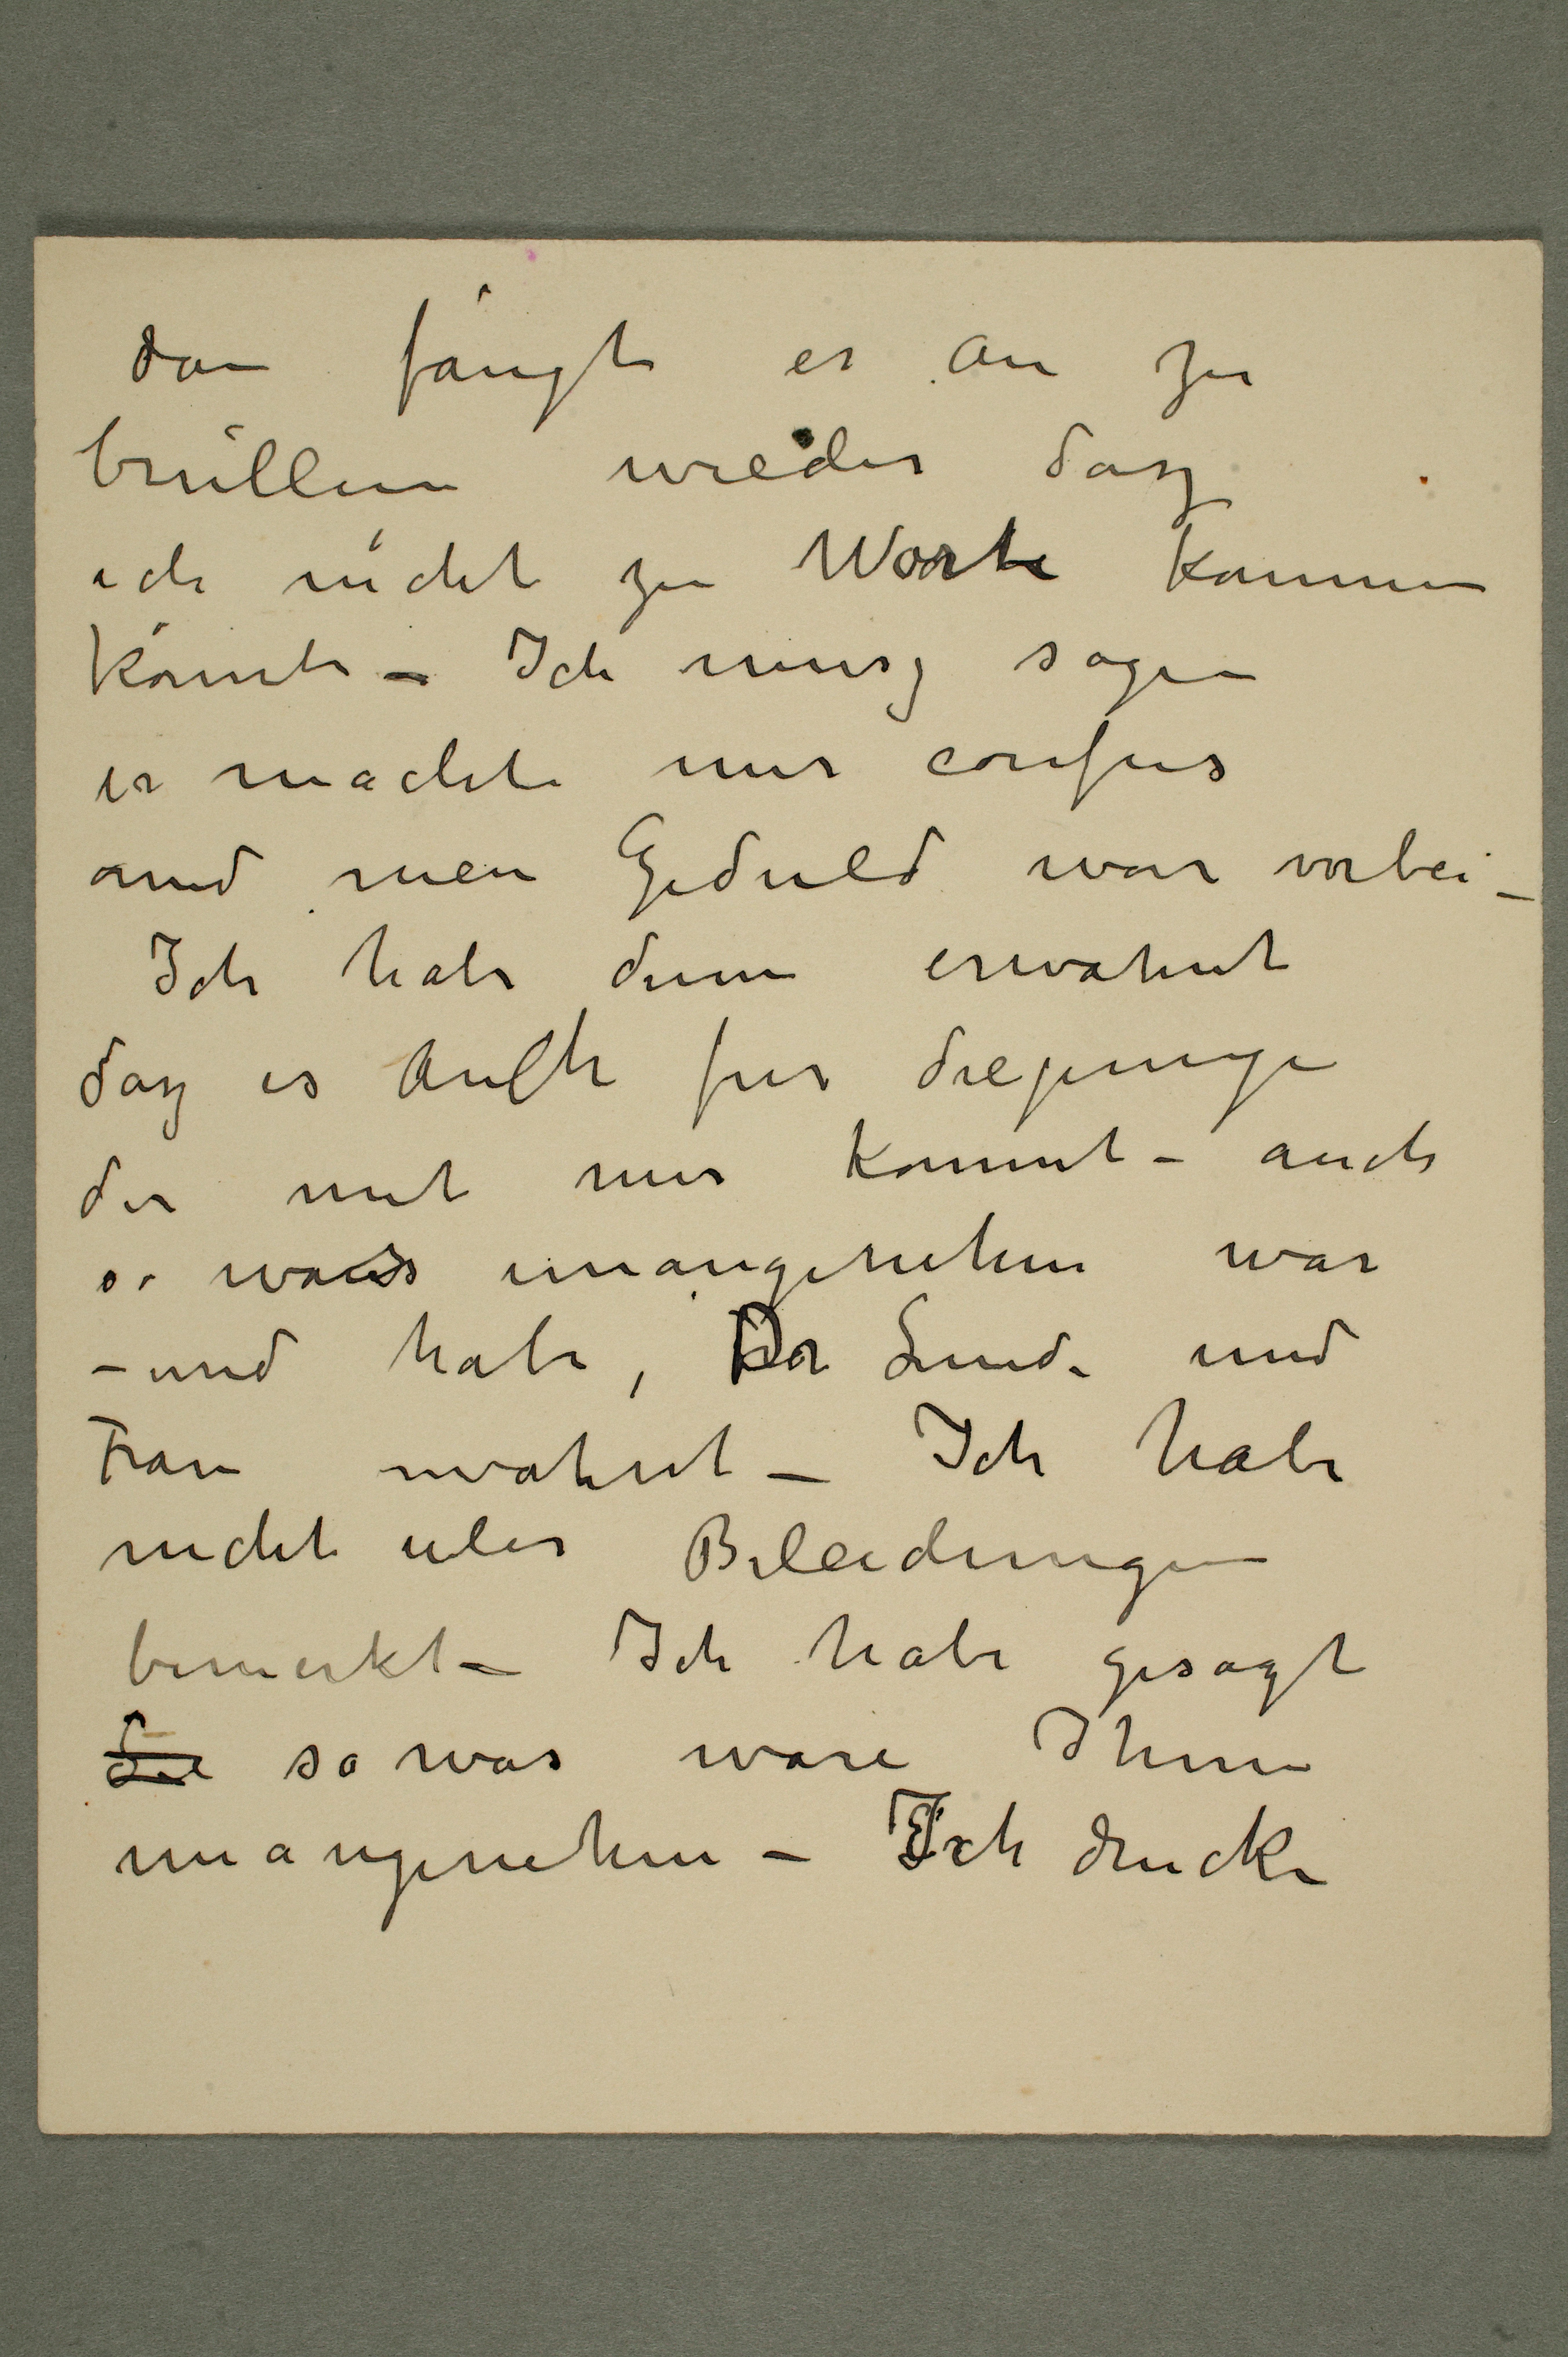 dan fängt er an zu
brüllen wieder dasz
ich nicht zu Worte kommen
könnte – Ich musz sagen
er machte mir confus
und mein Geduld war vorbei –
Ich habe denn erwähnt
dasz es auch fur diejenige
der mit mir kommt – auch
so was unangenehm war
– und habe, Dr Linde und
Frau erwähnt – Ich habe
nicht uber Beleidungen
bemerkt – Ich habe gesagt
Sie so was ware Ihnen
unangenehm – Ich drucke